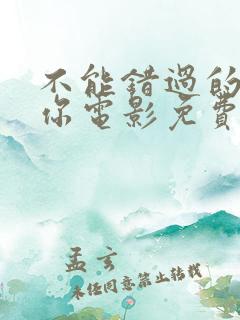 不能错过的
你电影免费
孟玄
未经同意禁止转载